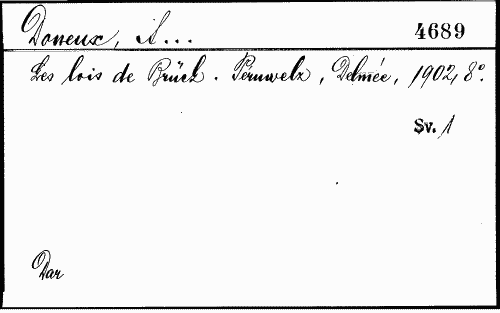 Doneux, A... 4689
Les lois de Brück. Péruwelz, Delmée, 1902, 8°.
Sv. 1
Dar